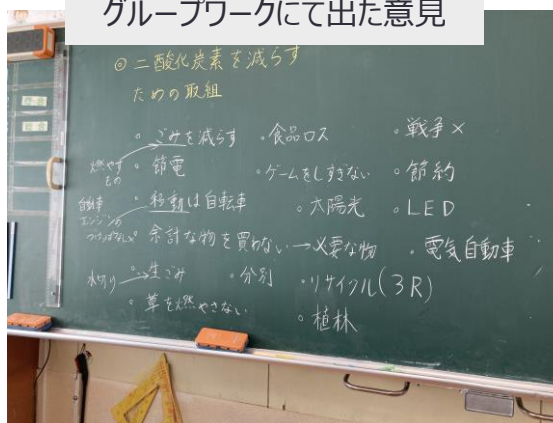 グループワークにて出た意見
◎二酸化炭素を減らす
ための取組
・ごみを減らす ・食品ロス ・戦争×
燃やすもの ・節電 ・ゲームをしすぎない ・節約
自動車 エンジンの つけっぱなし× ・移動は自転車 ・太陽光 ・LED
・余計な物を買わない→必要な物 ・電気自動車
水切り→生ごみ ・分別 ・リサイクル(3R)
・草を燃やさない ・植林